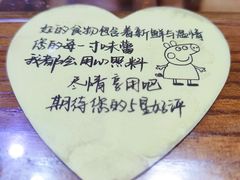 好的食物包含着新鲜与热情
您的每一寸味蕾
我都会用心照料
尽情享用吧
期待您的5星好评